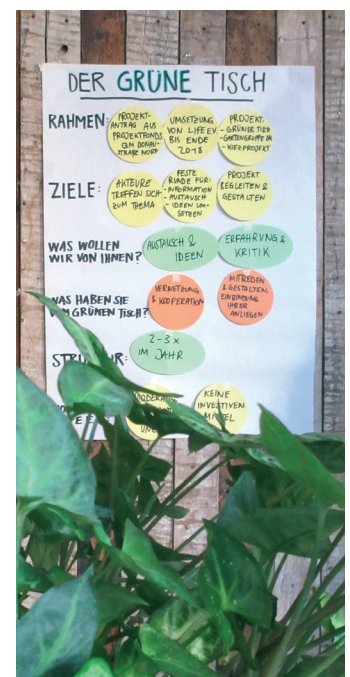 DER GRÜNE TISCH
RAHMEN:
PROJEKT-
ANTRAG AUS
PROJEKTFONDS
QM DONAU-
STRAßE NORD
UMSETZUNG
VON LIFE E.V.
BIS ENDE
2018
PROJEKT:
- GRÜNER TISCH
- GARTENGRUPPE
- KIEZPROJEKT
ZIELE:
AKTEURE
TREFFEN SICH
ZUM THEMA
FESTE
RUNDE FÜR:
- INFORMATION
- AUSTAUSCH
- IDEEN UM-
SETZEN
PROJEKT
BEGLEITEN &
GESTALTEN
WAS WOLLEN
WIR VON IHNEN?
AUSTAUSCH &
IDEEN
ERFAHRUNG &
KRITIK
WAS HABEN SIE
VOM GRÜNEN TISCH?
VERNETZUNG
& KOOPERATION
MITREDEN
& GESTALTEN,
EINBINDUNG
IHRER
ANLIEGEN
2-3 x
IM JAHR
KEINE
INVESTIVEN
MITTEL